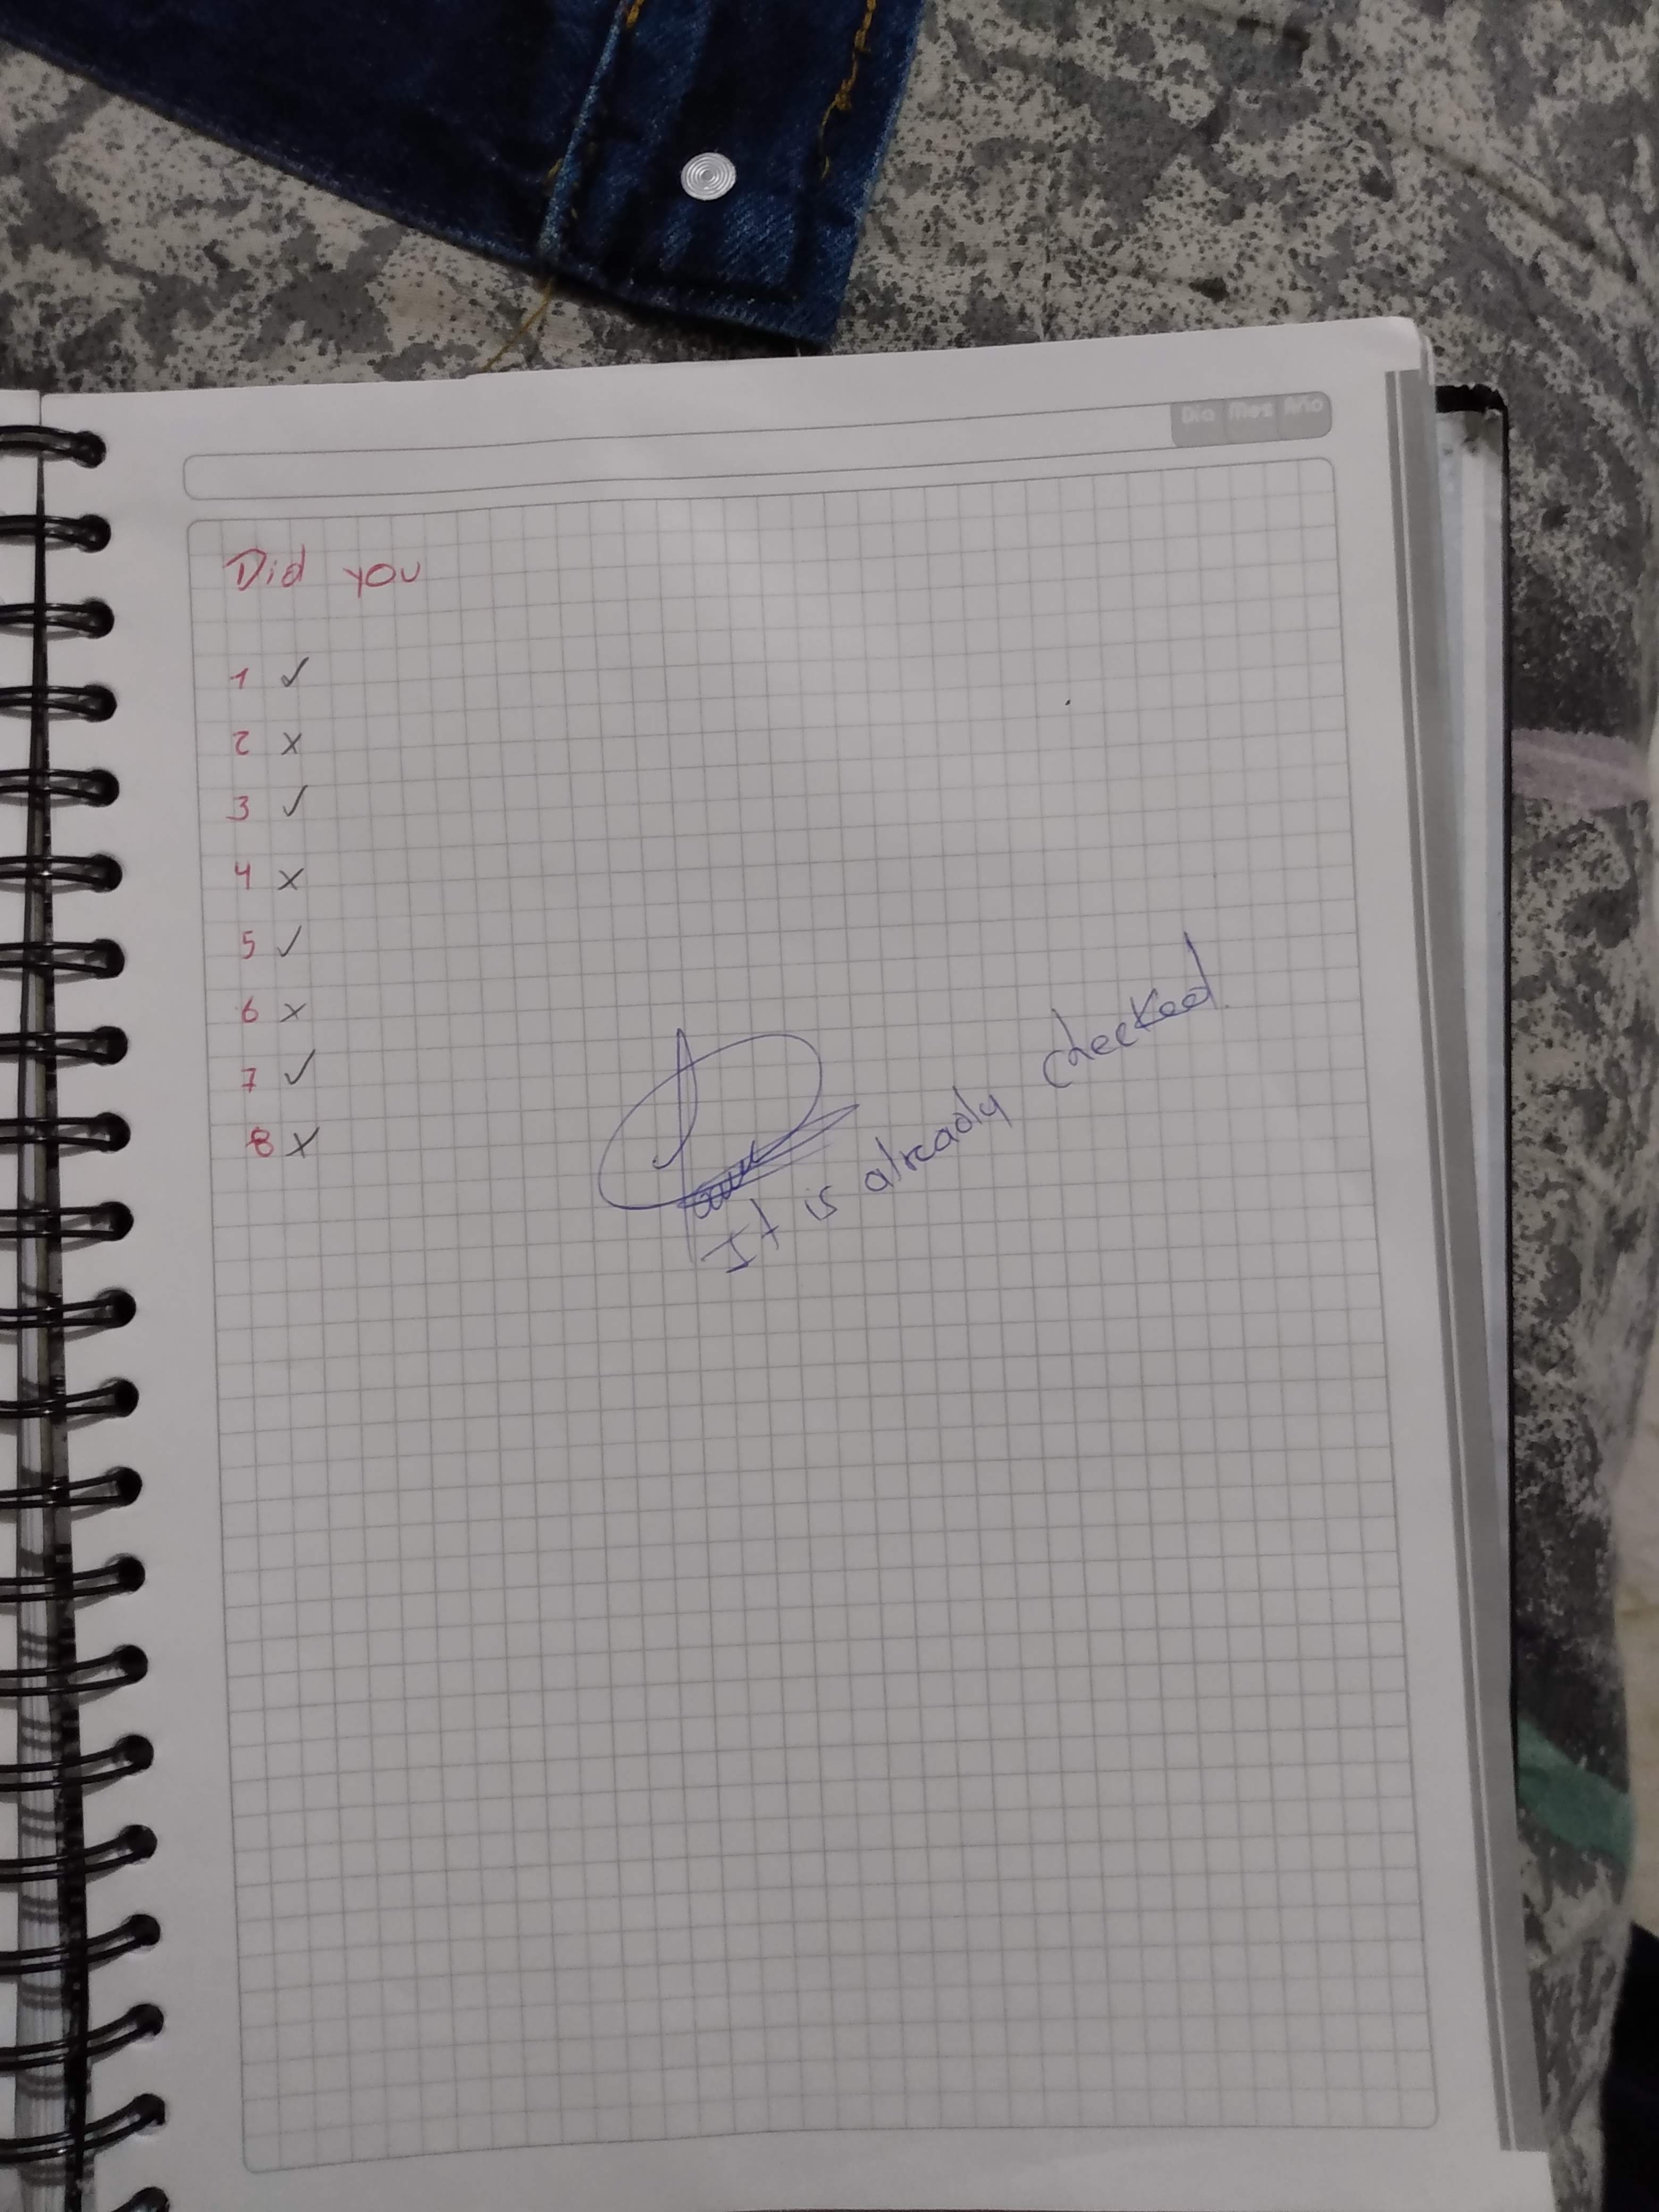 Dia Mes Año
Did you
1 ✓
2 x
3 ✓
4 x
5 ✓
6 x
7 ✓
8 x
It is already checked.